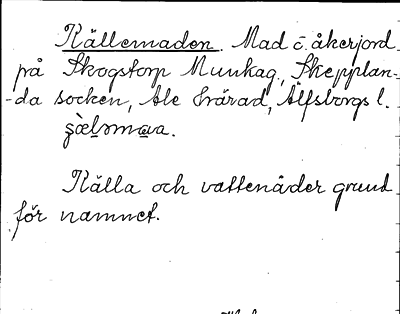 Källemaden. Mad o. åkerjord
på Skogstorp Munkag., Skepplan-
-da socken, Ale härad, Älfsborgs l.
Källa och vattenåder grund
för namnet.